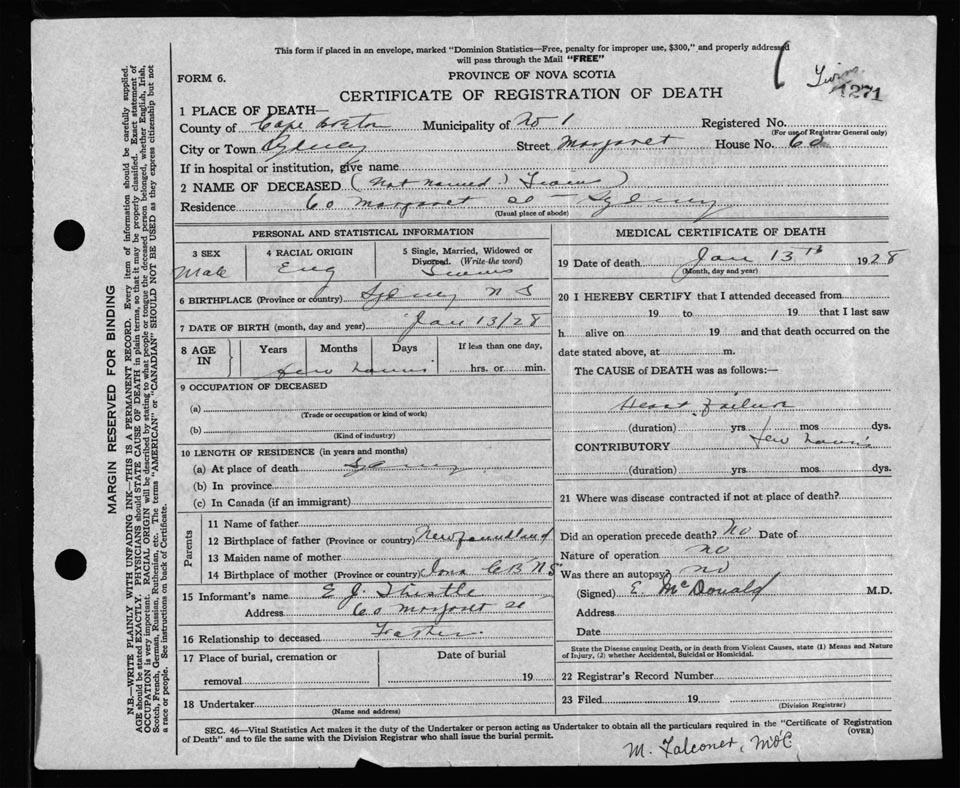 This form if placed in an envelope, marked "Dominion Statistics—Free, penalty for improper use, $300," and properly addressed
will pass through the Mail "FREE"
FORM 6. PROVINCE OF NOVA SCOTIA Twins
CERTIFICATE OF REGISTRATION OF DEATH 1271
1 PLACE OF DEATH—
County of Cape Breton Municipality of No 1 Registered No.
(For use of Registrar General only)
City or Town Sydney Street Margaret House No. 60
If in hospital or institution, give name
2 NAME OF DECEASED (Not Named)
Residence 60 Margaret St Sydney
(Usual place of abode)
PERSONAL AND STATISTICAL INFORMATION
3 SEX 4 RACIAL ORIGIN 5 Single, Married, Widowed or
Divorced. (Write the word)
Male Eng
6 BIRTHPLACE (Province or country) Sydney N S
7 DATE OF BIRTH (month, day and year) Jan 13/28
8 AGE IN Years Months Days If less than one day,
few hours hrs. or min.
9 OCCUPATION OF DECEASED
(a)
(Trade or occupation or kind of work)
(b)
(Kind of industry)
10 LENGTH OF RESIDENCE (in years and months)
(a) At place of death Sydney
(b) In province
(c) In Canada (if an immigrant)
Parents
11 Name of father
12 Birthplace of father (Province or country) Newfoundland
13 Maiden name of mother
14 Birthplace of mother (Province or country) Iona C B N S
15 Informant's name E J. Thistle
Address 60 Margaret St
16 Relationship to deceased Father.
17 Place of burial, cremation or Date of burial
removal 19
18 Undertaker
(Name and address)
MEDICAL CERTIFICATE OF DEATH
19 Date of death Jan 13th 1928
(Month, day and year)
20 I HEREBY CERTIFY that I attended deceased from
19 to 19 that I last saw
h alive on 19 and that death occurred on the
date stated above, at m.
The CAUSE of DEATH was as follows:—
Heart Failure
(duration) yrs. mos. dys.
CONTRIBUTORY few hours
(duration) yrs. mos. dys.
21 Where was disease contracted if not at place of death?
Did an operation precede death? No Date of
Nature of operation no
Was there an autopsy? no
(Signed) E. McDonald M.D.
Address
Date
State the Disease causing Death, or in death from Violent Causes, state (1) Means and Nature
of Injury, (2) whether Accidental, Suicidal or Homicidal.
22 Registrar's Record Number
23 Filed 19
(Division Registrar)
SEC. 46—Vital Statistics Act makes it the duty of the Undertaker or person acting as Undertaker to obtain all the particulars required in the "Certificate of Registration
of Death" and to file the same with the Division Registrar who shall issue the burial permit. (OVER)
M. Falconer,
MARGIN RESERVED FOR BINDING
N.B.—WRITE PLAINLY WITH UNFADING INK—THIS IS A PERMANENT RECORD. Every item of information should be carefully supplied.
AGE should be stated EXACTLY. PHYSICIANS should STATE CAUSE OF DEATH in plain terms, so that it may be properly classified. Exact statement of
OCCUPATION is very important. RACIAL ORIGIN will be described by stating to what people or tongue the deceased person belonged, whether English, Irish,
Scotch, French, German, Russian, Ruthenian, etc. The terms "AMERICAN" or "CANADIAN" SHOULD NOT BE USED as they express citizenship but not
a race or people. See instructions on back of Certificate.